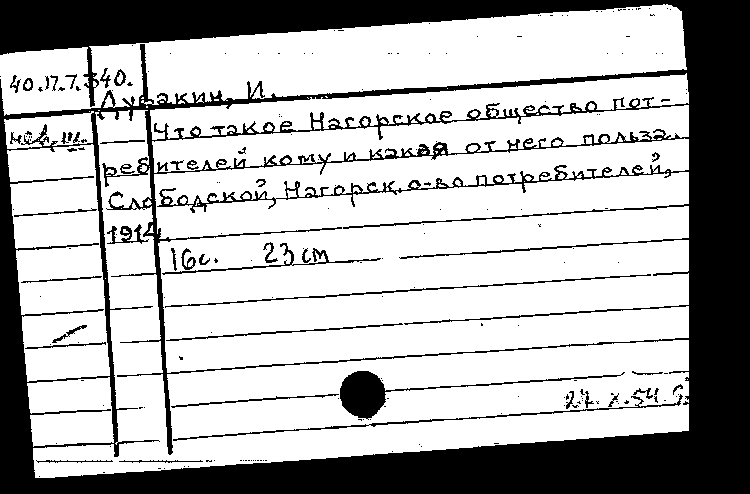 40.17.7.340.
Дувакин, И.
Что такое Нагорское общество пот-
ребителей кому и какая от него польза.
Слободской, Нагорск. о-во потребителей,
1914.
16с. 23 см
27. X. 54.